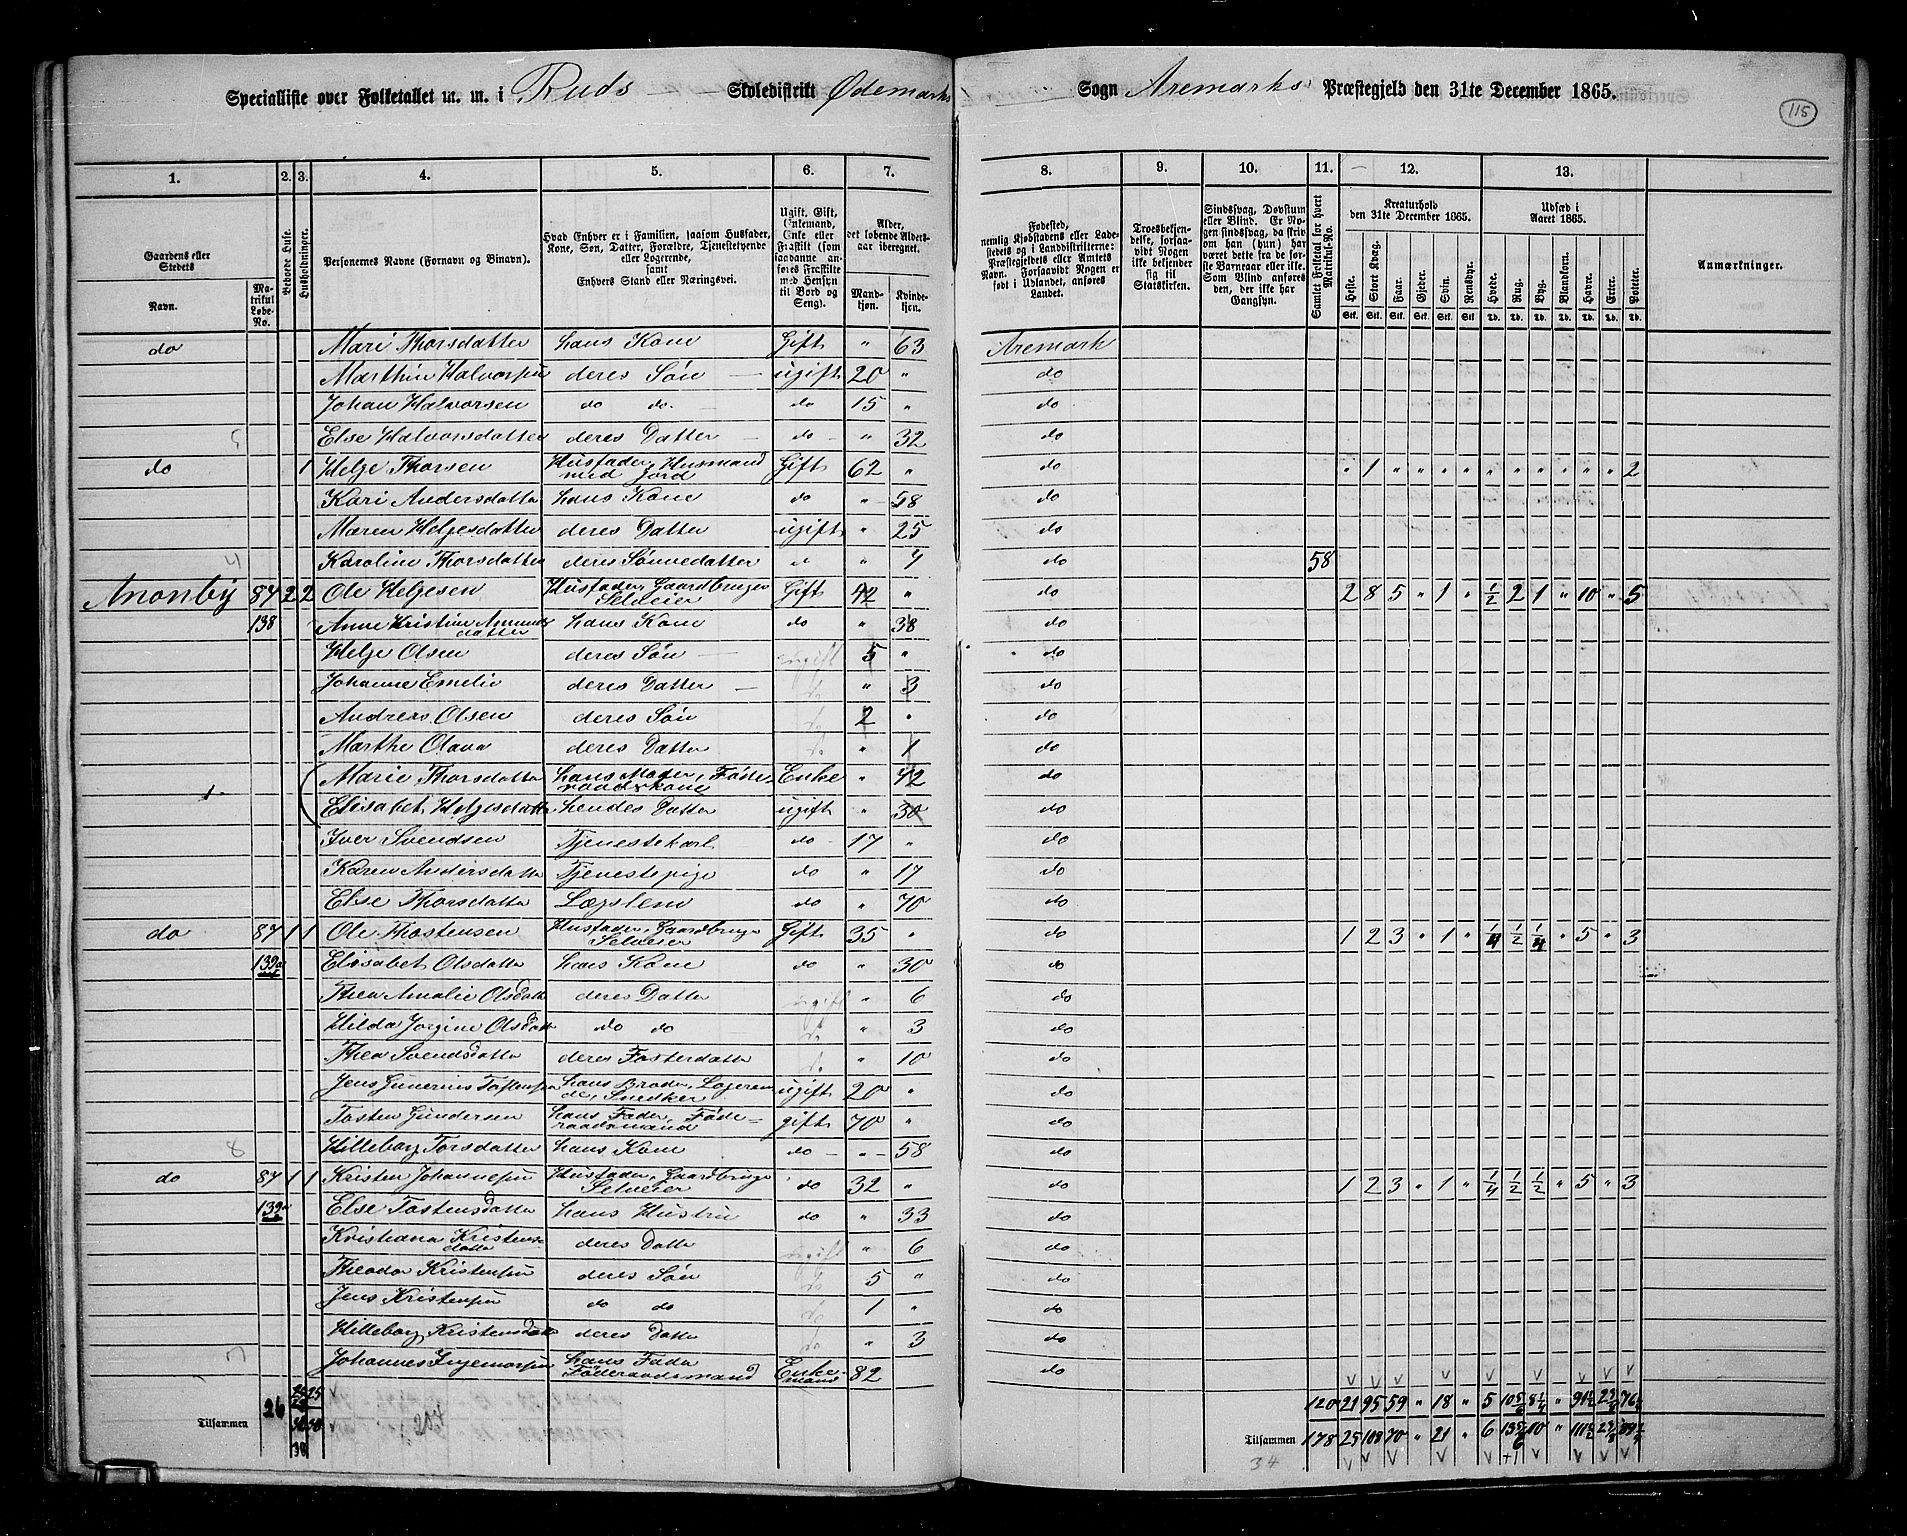 Specialliste over Folketallet m. m. i Ruds Skoledistrikt Ødemarks Sogn Aremarks Præstegjeld den 31te December 1865.
115
1. 2. 3. 4. 5. 6. 7. 8. 9. 10. 11. 12. 13.
Gaardens eller Stedets
Navn.
Matrikul Løbe-No.
Beboede Huse.
Husholdninger.
Personernes Navne (Fornavn og Binavn).
Hvad Enhver er i Familien, saasom Husfader, Kone, Søn, Datter, Forældre, Tjenestetyende eller Logerende, samt Enhvers Stand eller Næringsvei.
Ugift, Gift, Enkemand, Enke eller Fraskilt (som saadanne anføres Fraskilte med Hensyn til Bord og Seng).
Alder, det løbende Alders-aar iberegnet.
Mandkjøn. Kvindekjøn.
Fødested, nemlig Kjøbstadens eller Ladestedets og i Landdistrikterne: Præstegjeldets eller Amtets Navn. Forsaavidt Nogen er født i Udlandet, anføres Landet.
Troesbekjendelse, forsaavidt Nogen ikke bekjender sig til Statskirken.
Sindssvag, Døvstum eller Blind. Er Nogen sindssvag, da skrives om han (hun) har været dette fra de første Barneaar eller ikke. Som Blind anføres den, der ikke har Gangsyn.
Samlet Folketal for hvert Matrikul-No.
Kreaturhold den 31te December 1865.
Heste. Stort Kvæg. Faar. Gjeder. Svin. Rensdyr.
Udsæd i Aaret 1865.
Hvede. Rug. Byg. Blandkorn. Havre. Erter. Poteter.
Anmærkninger.
do Mari Thorsdatter hans Kone Gift " 63 Aremark
Marthin Halvorsen deres Søn ugift 20 " do
Johan Halvorsen do do do 15 " do
Else Halvorsdatter deres Datter do " 32 do
do 1 Helje Thorsen Husfader, Husmand med Jord Gift 62 " do " 1 " " " " " " " " " " 2
Kari Andersdatter hans Kone do " 58 do
Maren Heljesdatter deres Datter ugift " 25 do
4 Karoline Thorsdatter deres Sønnedatter do " 7 do 58
Anonby 87 2 2 Ole Heljesen Husfader, Gaardbruger Selveier Gift 42 " do 2 8 5 " 1 " 1/2 2 1 " 10 " 5
138 Anne Kristine Amundsdatter hans Kone do " 38 do
Helje Olsen deres Søn ugift 5 " do
Johanne Emelie deres Datter do " 3 do
Andreas Olsen deres Søn do 2 " do
Marthe Olava deres Datter do " 1 do
Marie Thorsdatter hans Moder, Føderaadskone Enke " 72 do
1 Elisabet Heljesdatter hendes Datter ugift " 30 do
Iver Svendsen Tjenestekarl do 17 " do
Karen Andersdatter Tjenestepige do " 17 do
Else Thorsdatter Lægslem do " 70 do
do 87 1 1 Ole Thostensen Husfader, Gaardbruger Selveier Gift 35 " do 1 2 3 " 1 " 1/4 1/2 1/4 " 5 " 3
139a Elisabet Olsdatter hans Kone do " 30 do
Thea Amalie Olsdatter deres Datter ugift " 6 do
Hilda Jorgine Olsdatter do do do " 3 do
Thea Svendsdatter deres Fosterdatter do " 10 do
Jens Gunerius Tostensen hans Broder, Logerende, Snedker ugift 20 " do
Tosten Gundersen hans Fader, Føderaadsmand gift 70 " do
8 Hilleborg Torsdatter hans Kone do " 58 do
do 87 1 1 Kristen Johannesen Husfader, Gaardbruger Selveier do 32 " do 1 2 3 " 1 " 1/4 1/2 1/2 " 5 " 3
139b Else Tostensdatter hans Hustru do " 33 do
Kristiana Kristensdatter deres Datter ugift " 6 do
Theodor Kristensen deres Søn do 5 " do
Jens Kristensen do do do 1 " do
Hilleborg Kristensdatter deres Datter do " 3 do
7 Johannes Ingemorsen hans Fader Føderaadsmand Enkemand 82 do
120 21 95 59 " 18 " 5 10 5/6 8 1/4 "
Tilsammen 26
Tilsammen 178 25 108 70 " 21 " 6 13 5/6 10 "
34 +1